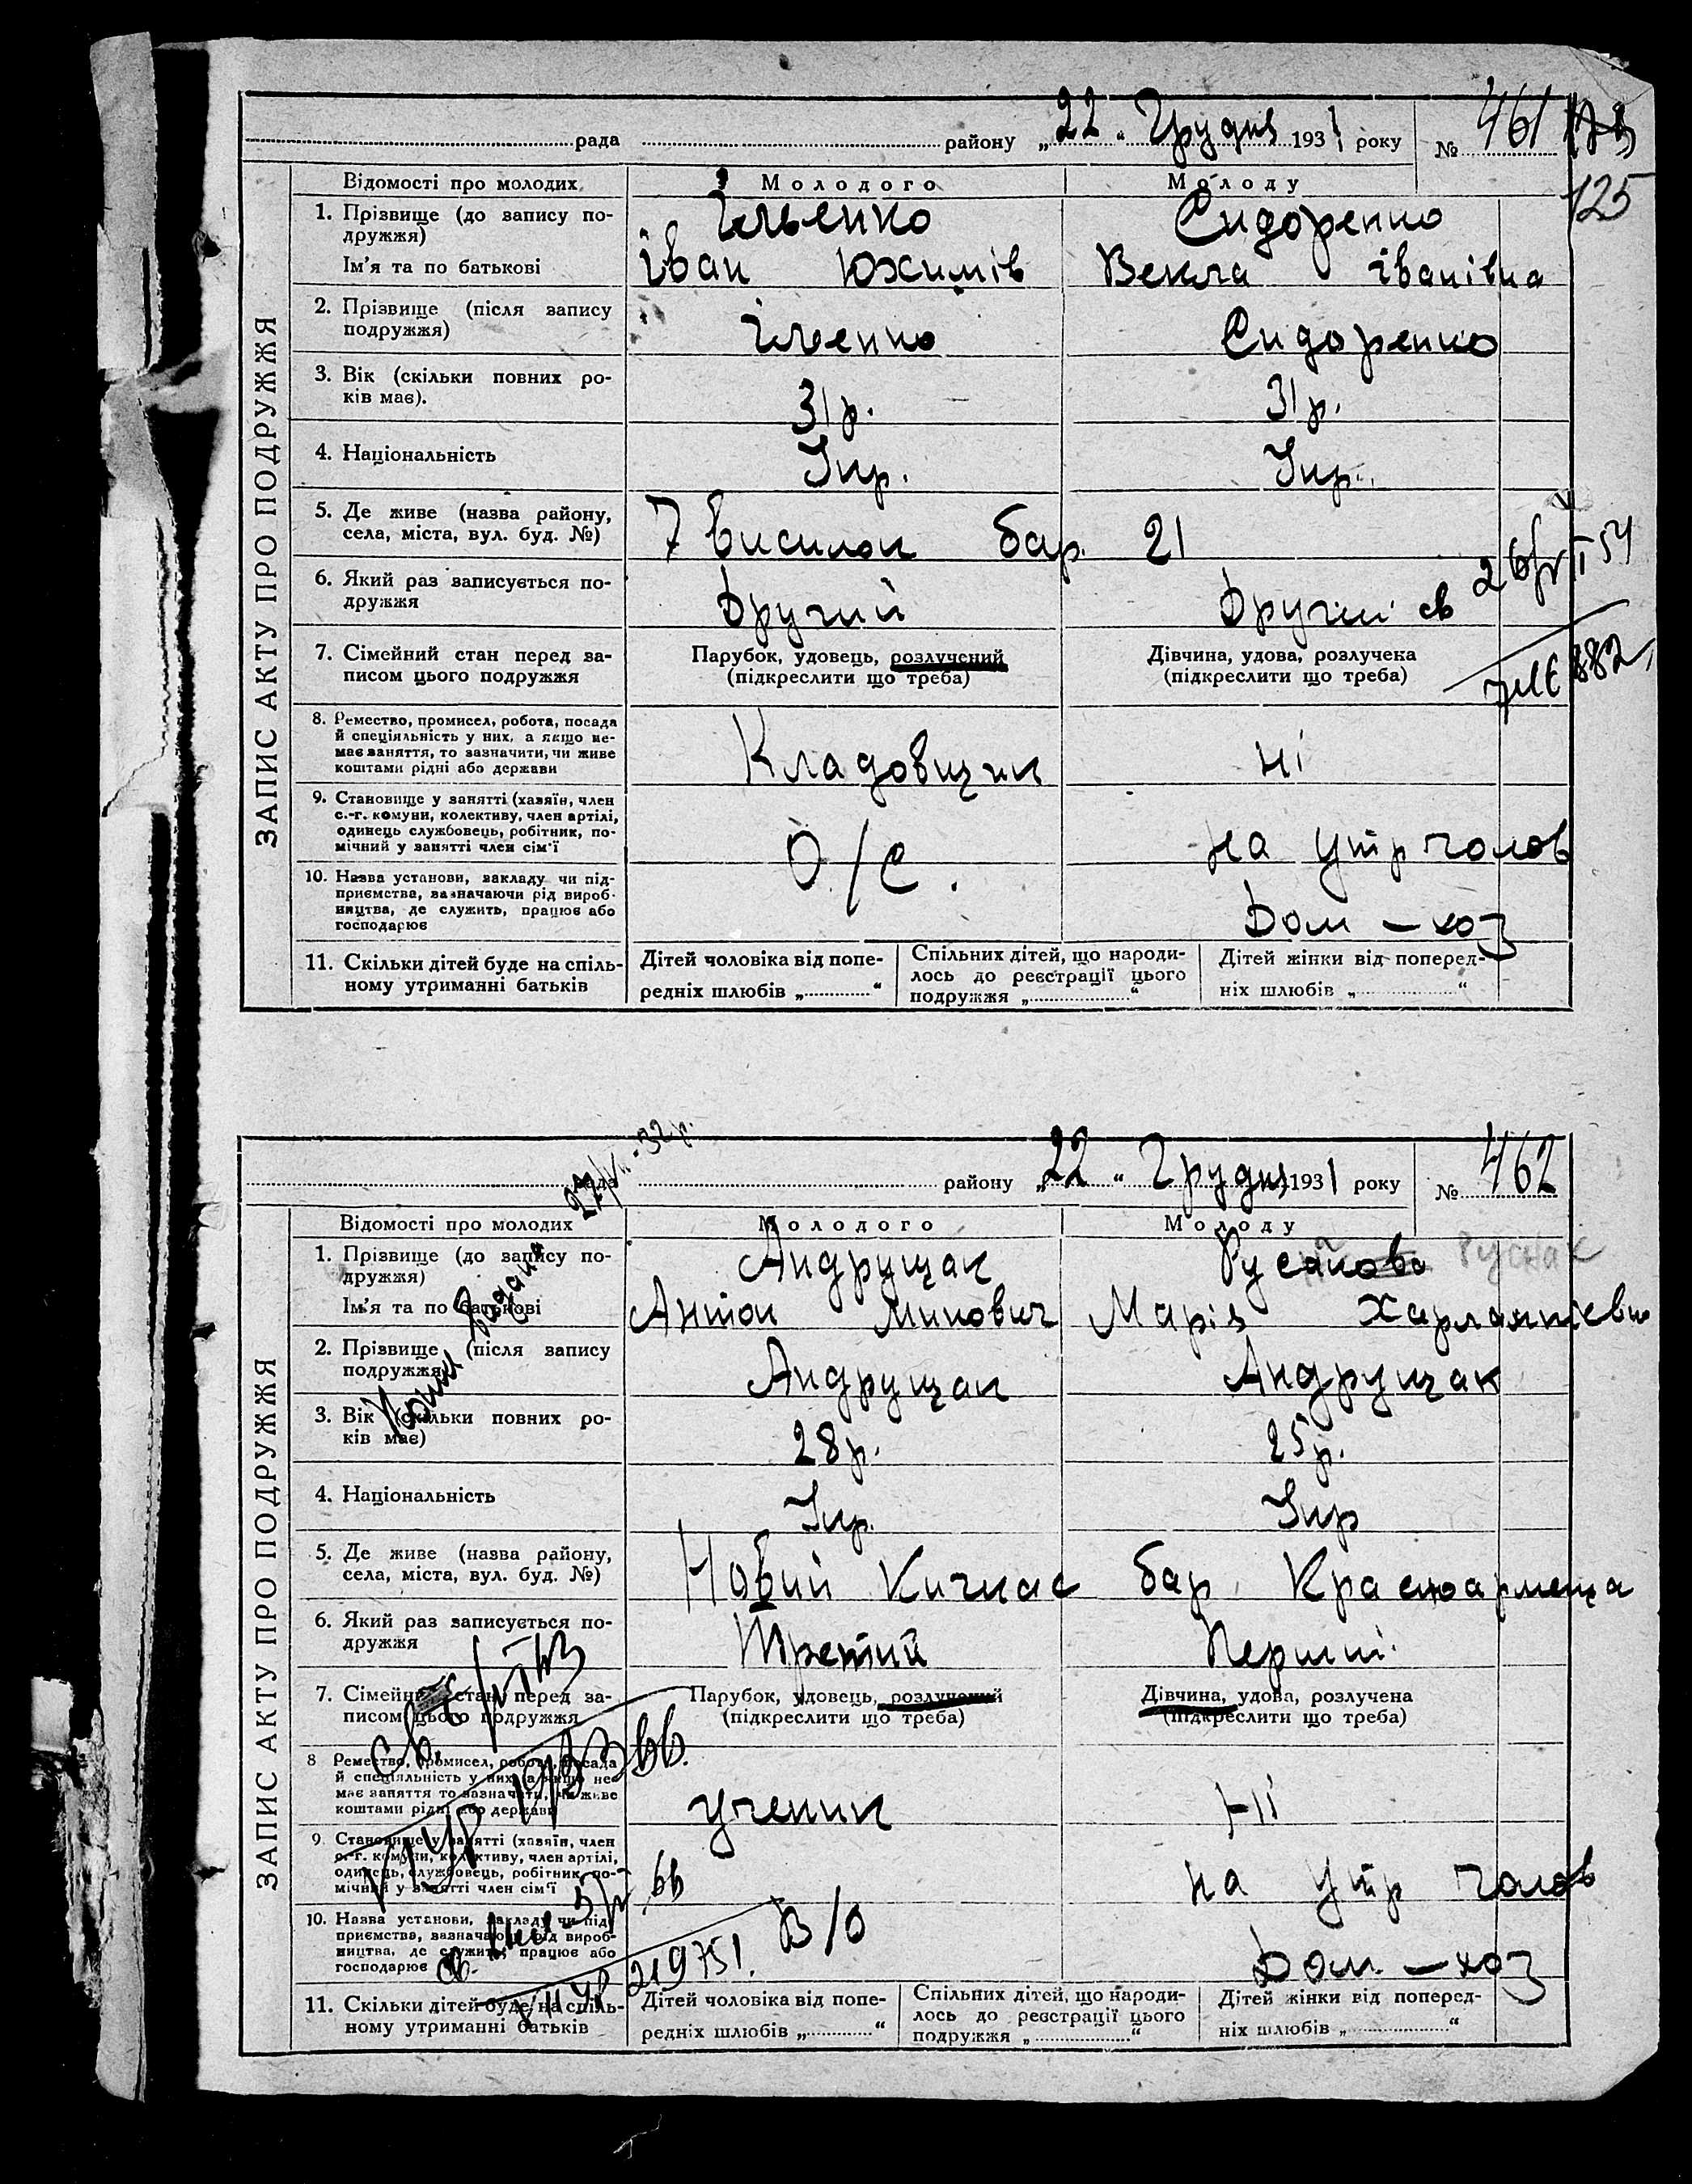 рада района „22“ Грудня 1931 року № 461
125
ЗАПИС АКТУ ПРО ПОДРУЖЖЯ
Відомості про молодих Молодого Молоду
1. Прізвище (до запису по- Ільенко Сидоренко
дружжя)
Ім'я та по батькові Іван Юхимів Векла Іванівна
2. Прізвище (після запису
подружжя) Ільенко Сидоренко
3. Вік (скільки повних ро-
ків має). 31 р. 31 р.
4. Національність Укр. Укр.
5. Де живе (назва району,
села, міста, вул. буд. №) 7 висилок бар. 21
6. Який раз записується по-
дружжя Другий Другий св
7. Сімейний стан перед за- Парубок, удовець, розлучений Дівчина, удова, розлучена
писом цього подружжя (підкреслити що треба) (підкреслити що треба)
882
8. Ремество, промисел, робота, посада
й спеціяльність у них, а якщо не-
має заняття, то зазначити, чи живе
коштами рідні або держави Кладовщик Ні
9. Становище у занятті (хазяїн, член
с.-г. комуни, колективу, член артілі,
одинець службовець, робітник, по-
мічний у занятті член сім'ї О/С. на утр чолов
10. Назва установи, закладу чи під-
приємства, зазначаючи рід вироб-
ництва, де служить, працює або
господарює Дом – хоз
11. Скільки дітей буде на спіль- Дітей чоловіка від попе- Спільних дітей, що народи- Дітей жінки від поперед-
ному утриманні батьків редніх шлюбів „ “ лось до реєстрації цього ніх шлюбів „ “
подружжя „ “
рада району „22“ Грудня 1931 року № 462
ЗАПИС АКТУ ПРО ПОДРУЖЖЯ
Відомості про молодих Молодого Молоду
1. Прізвище (до запису по- Андрущак Русакова Руснак
дружжя)
Ім'я та по батькові Антон Минович Марія Харлампієвна
2. Прізвище (після запису
подружжя) Андрущак Андрущак
3. Вік (скільки повних ро-
ків має) 28 р. 25 р.
4. Національність Укр. Укр
5. Де живе (назва району,
села, міста, вул. буд. №) Новий Кичкас бар. Красноармейца
6. Який раз записується по-
дружжя Третий Перший
7. Сімейний стан перед за- Парубок, удовець, розлучений Дівчина, удова, розлучена
писом цього подружжя (підкреслити що треба) (підкреслити що треба)
8 Ремество, промисел, робота, посада
й спеціяльність у них, а якщо не-
має заняття то зазначити, чи живе
коштами рідні або держави ученик Ні
9. Становище у занятті (хазяїн, член
с.-г. комуни, колективу, член артілі,
одинець, службовець, робітник, по-
мічний у занятті член сім'ї на утр чолов
10. Назва установи, закладу чи під-
приємства, зазначаючи рід вироб-
ництва, де служить, працює або
господарює В/О Дом – хоз
219751.
11. Скільки дітей буде на спіль- Дітей чоловіка від попе- Спільних дітей, що народи- Дітей жінки від поперед-
ному утриманні батьків редніх шлюбів „ “ лось до реєстрації цього ніх шлюбів „ “
подружжя „ “